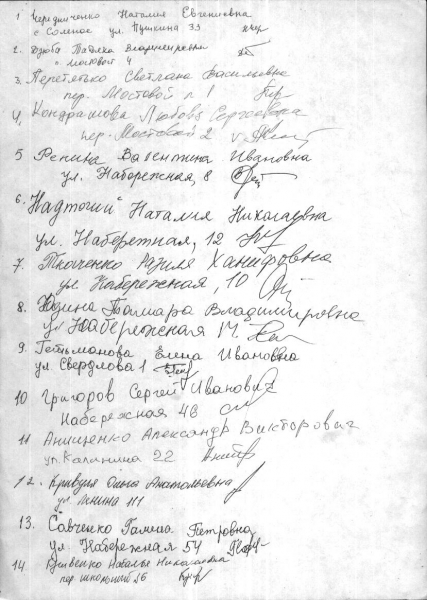 1 Чередниченко Наталия Евгениевна
с Соленое ул. Пушкина 33
2. Дзюба Татьяна Владимировна
Мостовой 4
3. Перетятько Светлана Васильевна
пер. Мостовой 1
4. Кондрашова Любовь Сергеевна
пер. Мостовой 2
5 Репина Валентина Ивановна
ул. Набережная, 8
6. Надточий Наталия Николаевна
ул. Набережная, 12
7. Ткаченко Розиля Ханифовна
ул. Набережная, 10
8. Юзина Тамара Владимировна
ул Набережная 14
9. Гетьманова Елена Ивановна
ул. Свердлова 1
10 Григоров Сергей Иванович
Набережная 48
11 Анищенко Александр Викторович
ул. Калинина 22
12. Кривуля Ольга Анатольевна
ул. Ленина 111
13. Савченко Галина Петровна
ул. Набережная 54
14 Наталья Николаевна
пер школьный 56